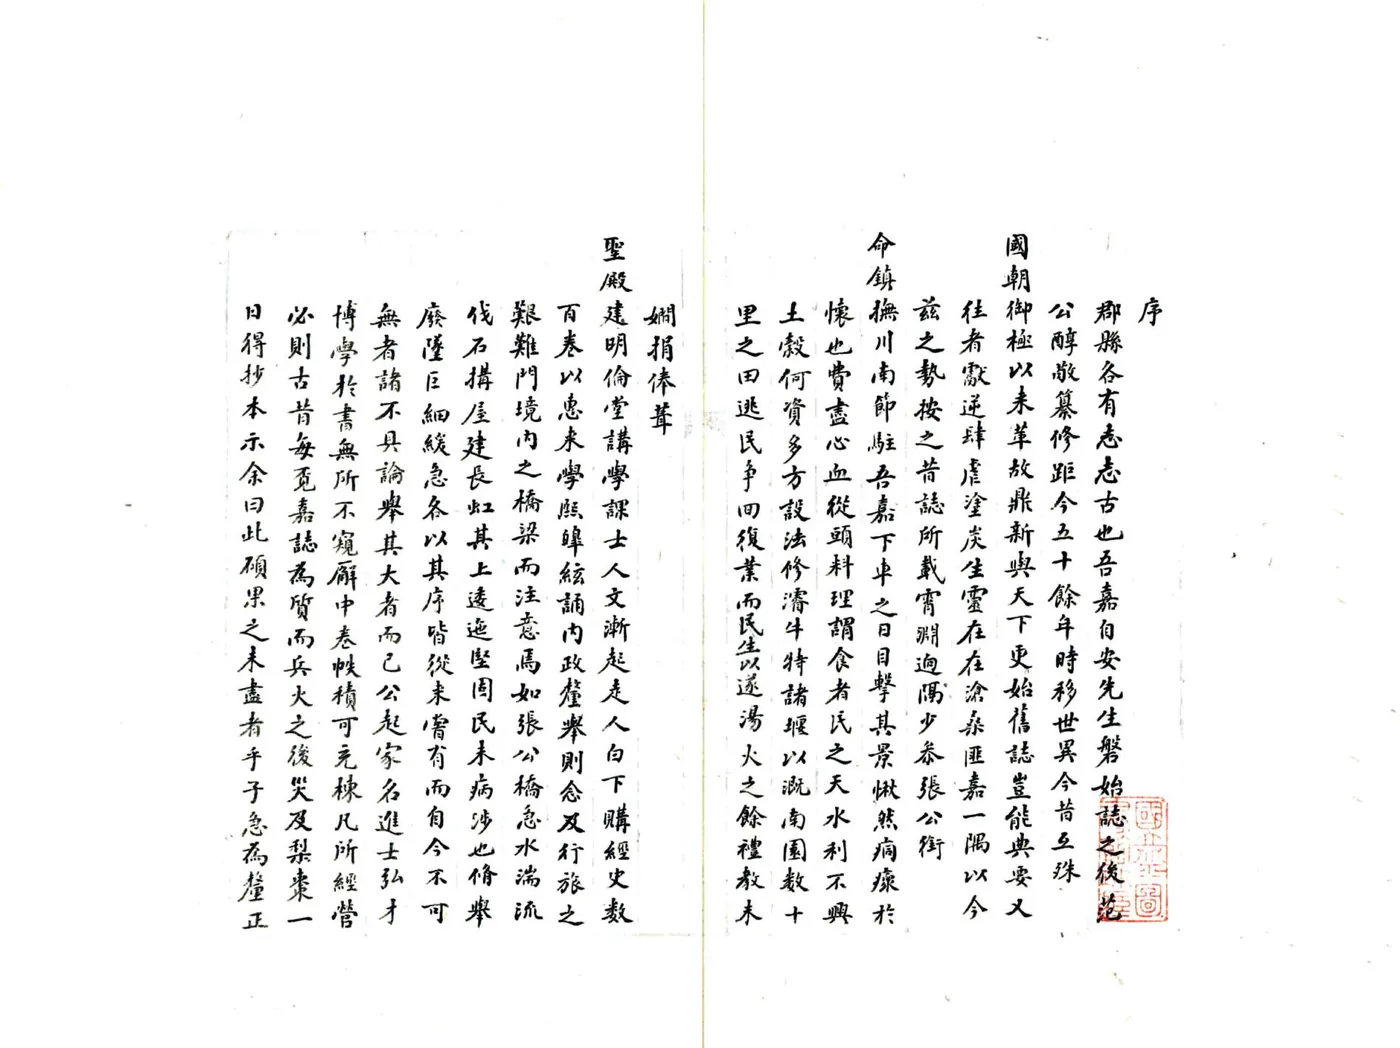 序
郡縣各有志志古也吾嘉自安先生磐始誌之後范
公醇敬纂修距今五十餘年時移世異今昔互殊
國朝御極以來革故鼎新與天下更始舊誌豈能典要又
往者獻逆肆虐塗炭生靈在在滄桑匪嘉一隅以今
茲之勢按之昔誌所載霄淵逈隅少叅張公銜
命鎮撫川南節駐吾嘉下車之日目擊其景愀然痌瘝於
懷也費盡心血從頭料理謂食者民之天水利不興
土穀何資多方設法修濬牛特諸堰以溉南園数十
里之田逃民争回復業而民生以遂湯火之餘禮教未
嫺捐俸葺
聖殿建明倫堂講學課士人文漸起走人白下購經史数
百卷以惠来學熙皞絃誦内政釐舉則念及行旅之
艱難門境内之橋梁而注意焉如張公橋急水湍流
伐石搆屋建長虹其上逶迤堅固民未病涉也脩舉
廢墜巨細緩急各以其序皆從来嘗有而自今不可
無者諸不具論舉其大者而已公起家名進士弘才
博學於書無所不窺廨中卷帙積可充棟凡所經營
必則古昔每覔嘉誌為質而兵火之後災及梨棗一
日得抄本示余曰此碩果之未盡者乎子急為釐正